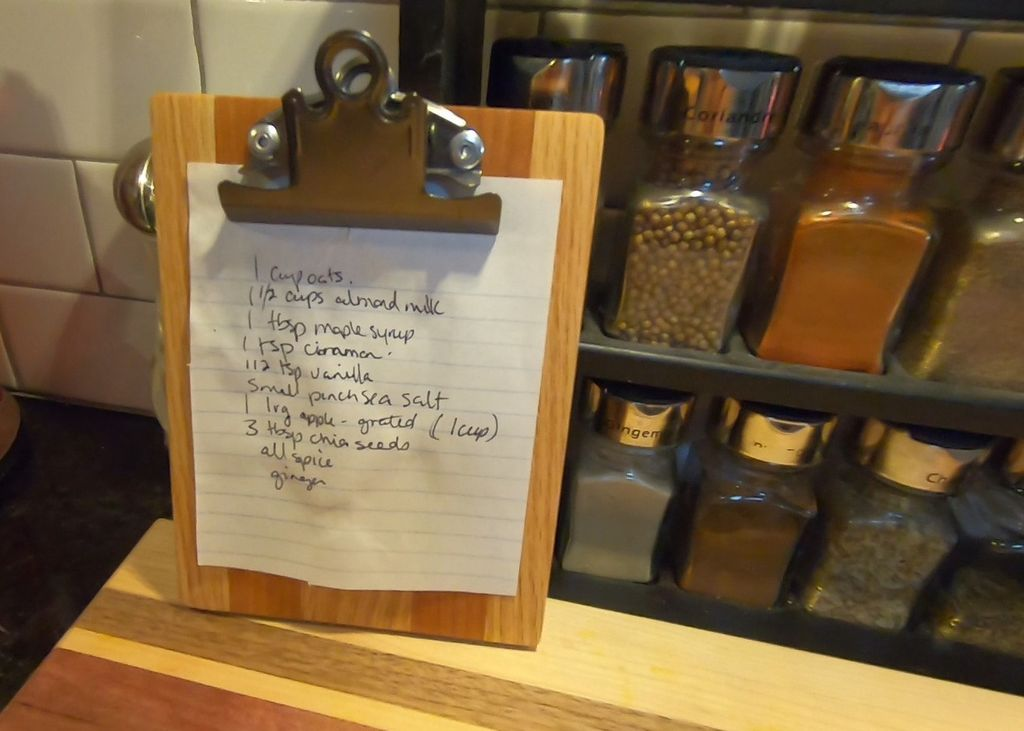 1 cup oats.
1 1/2 cups almond milk
1 tbsp maple syrup
1 tsp cinnamon.
1/2 tsp vanilla
Small pinch sea salt
1 lrg apple - grated (1 cup)
3 tbsp chia seeds
all spice
ginger
Coriander
Ginger